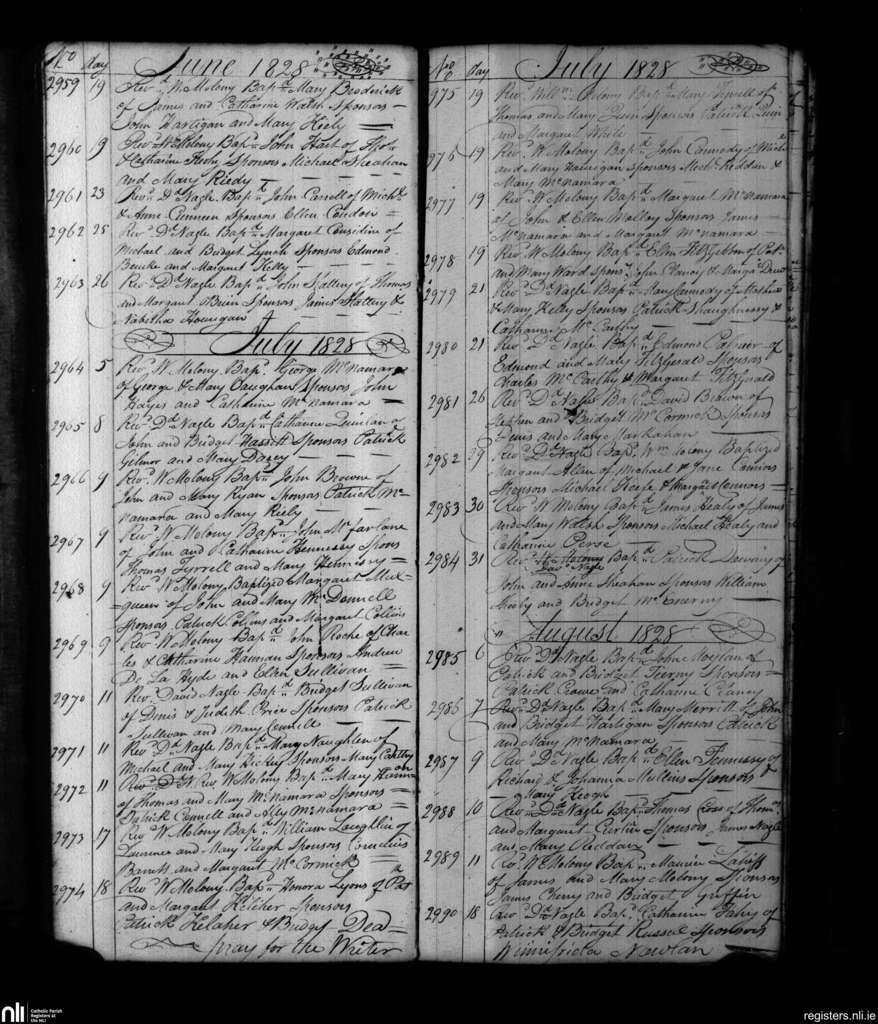 No day June 1828
2959 19 Revd. W. Molony Bapd. Mary Broderick
of James and Catharine Walsh Sponsors
John Hartigan and Mary Kiely
2960 19 Revd. W. Molony Bapd. John Hart of Thos.
& Catharine Sponsors Michael Sheahan
and Mary Riedy
2961 23 Revd. Dd. Nagle Bapd. John Carroll of Michl.
& Anne Cunneen Sponsors Ellen Condon
2962 25 Revd. Dd. Nagle Bapd. Margaret Considine of
Michael and Bridget Lynch Sponsors Edmond
Bourke and Margaret Kelly
2963 26 Revd. Dd. Nagle Bapd. John Slattery of Thomas
and Margaret OBrien Sponsors James Slattery &
Nabetha Hourigan
July 1828
2964 5 Revd. W. Molony Bapd. George McNamara
of George & Mary Vaughan Sponsors John
Hayes and Catharine McNamara
2965 8 Revd. Dd. Nagle Bapd. Catharine Quinlan of
John and Bridget Hassett Sponsors Patrick
Gilmor and Mary Darcy
2966 9 Revd. W. Molony Bapd. John Browne of
John and Mary Ryan Sponsors Patrick Mc
namara and Mary Kiely
2967 9 Revd. W. Molony Bapd. John McFarlane
of John and Catharine Hennessy Spons
Thomas Tyrrell and Mary Hennessy
2968 9 Revd. W. Molony Baptized Margaret
queen of John and Mary McDonnell
Sponsors Patrick Collins and Margaret Collins
2969 9 Revd. W. Molony Bapd. John Roche of Char
les & Catharine Hannan Sponsors Andrew
De La Hyde and Ellen Sullivan
2970 11 Revd. David Nagle Bapd. Bridget Sullivan
of Denis & Judith Price Sponsors Patrick
Sullivan and Mary Connell
2971 11 Revd. Dd. Nagle Bapd. Mary Naughten of
Michael and Mary Hickey Sponsors Mary Carthy
2972 11 Revd. W. Molony Bapd. Mary
of Thomas and Mary McNamara Sponsors
Patrick Connell and Ally McNamara
2973 17 Revd. W. Molony Bapd. William Laughlin of
Laurence and Mary Keogh Sponsors Cornelius
Barrett and Margaret McCormick
2974 18 Revd. W. Molony Bapd. Honora Lyons of Pat
and Margaret Keliher Sponsors
Patrick Kelaher & Bridget Dea
pray for the Writer
No day July 1828
975 19 Revd. Willm. Molony Bapd. Mary Tyrrell of
Thomas and Mary Quin Sponsors Patrick Quin
and Margaret White
976 19 Revd. W. Molony Bapd. John Connedy of Mich
and Mary Hannigan Sponsors Michl. Reddan &
Mary McNamara
2977 19 Revd. W. Molony Bapd. Margaret McNamara
of John & Ellen Molloy Sponsors James
McNamara and Margaret McNamara
2978 19 Revd. W. Molony Bapd. Ellen FitzGibbon of Patk.
and Mary Ward Spons. John Clancy & Margt.
2979 21 Revd. Dd. Nagle Bapd. Mary Kennedy of Mathias
& Mary Kelly Sponsors Patrick Shaughnessy &
Catharine McCarthy
2980 21 Revd. Dd. Nagle Bapd. Edmond of
Edmond and Mary FitzGerald Sponsors
Charles McCarthy & Margaret FitzGerald
2981 26 Revd. Dd. Nagle Bapd. David Brown of
Stephen and Bridget McCormick Sponsors
and Mary Markahan
2982 29 Revd. Dd. Nagle Bapd. Wm. Molony Baptized
Margaret Allen of Michael & Jane Connors
Sponsors Michael & Margaret Connors
2983 30 Revd. W. Molony Bapd. James Healy of James
and Mary Walsh Sponsors Michael Healy and
Catharine Perse
2984 31 Revd. Wm. Molony Bapd. Patrick Downing of
David Nagle
John and Anne Sheahan Sponsors William
Sheehy and Bridget McEnerny
August 1828
2985 6 Revd. Dd. Nagle Bapd. John Moylan of
Patrick and Bridget Tierny Sponsors
Patrick Crowe and Catharine Clancy
2986 7 Revd. Dd. Nagle Bapd. Mary Merritt of John
and Bridget Hartigan Sponsors Patrick
and Mary McNamara
2987 9 Revd. Dd. Nagle Bapd. Ellen Fennessy of
Richard & Johanna Mullins Sponsors
Mary Keogh
2988 10 Revd. Dd. Nagle Bapd. Thomas of Thoms.
and Margaret Curtin Sponsors James Nagle
and Mary
2989 11 Revd. W. Molony Bapd. Maurice
of James and Mary Molony Sponsors
James Cherry and Bridget Griffin
2990 18 Revd. Dd. Nagle Bapd. Catharine Fahy of
Patrick & Bridget Russel Sponsors
Winnifrida Nowlan
nli Catholic Parish
Registers at
the NLI
registers.nli.ie